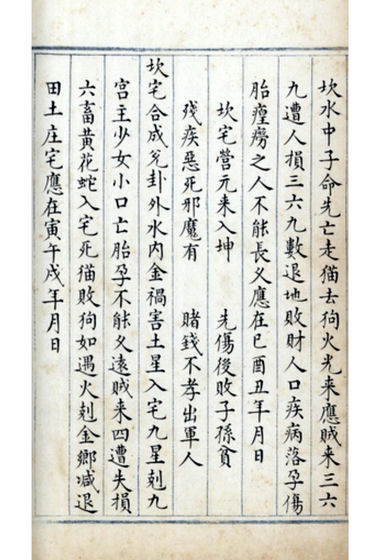 坎水中子命先亡走猫去狗火光来應賊来三六
九遭人損三六九數退地敗財人口疾病落孕傷
胎瘽癆之人不能長乂應在巳酉丑年月日
坎宅營元来入坤　先傷後敗子孫貧
残疾惡死邪魔有　賭錢不孝出軍人
坎宅合成兊卦外水内金禍害土星入宅九星剋九
宫主少女小口亡胎孕不能乂遠賊来四遭失損
六畜黄花蛇入宅死猫敗狗如遇火剋金鄉减退
田土庄宅應在寅午戌年月日